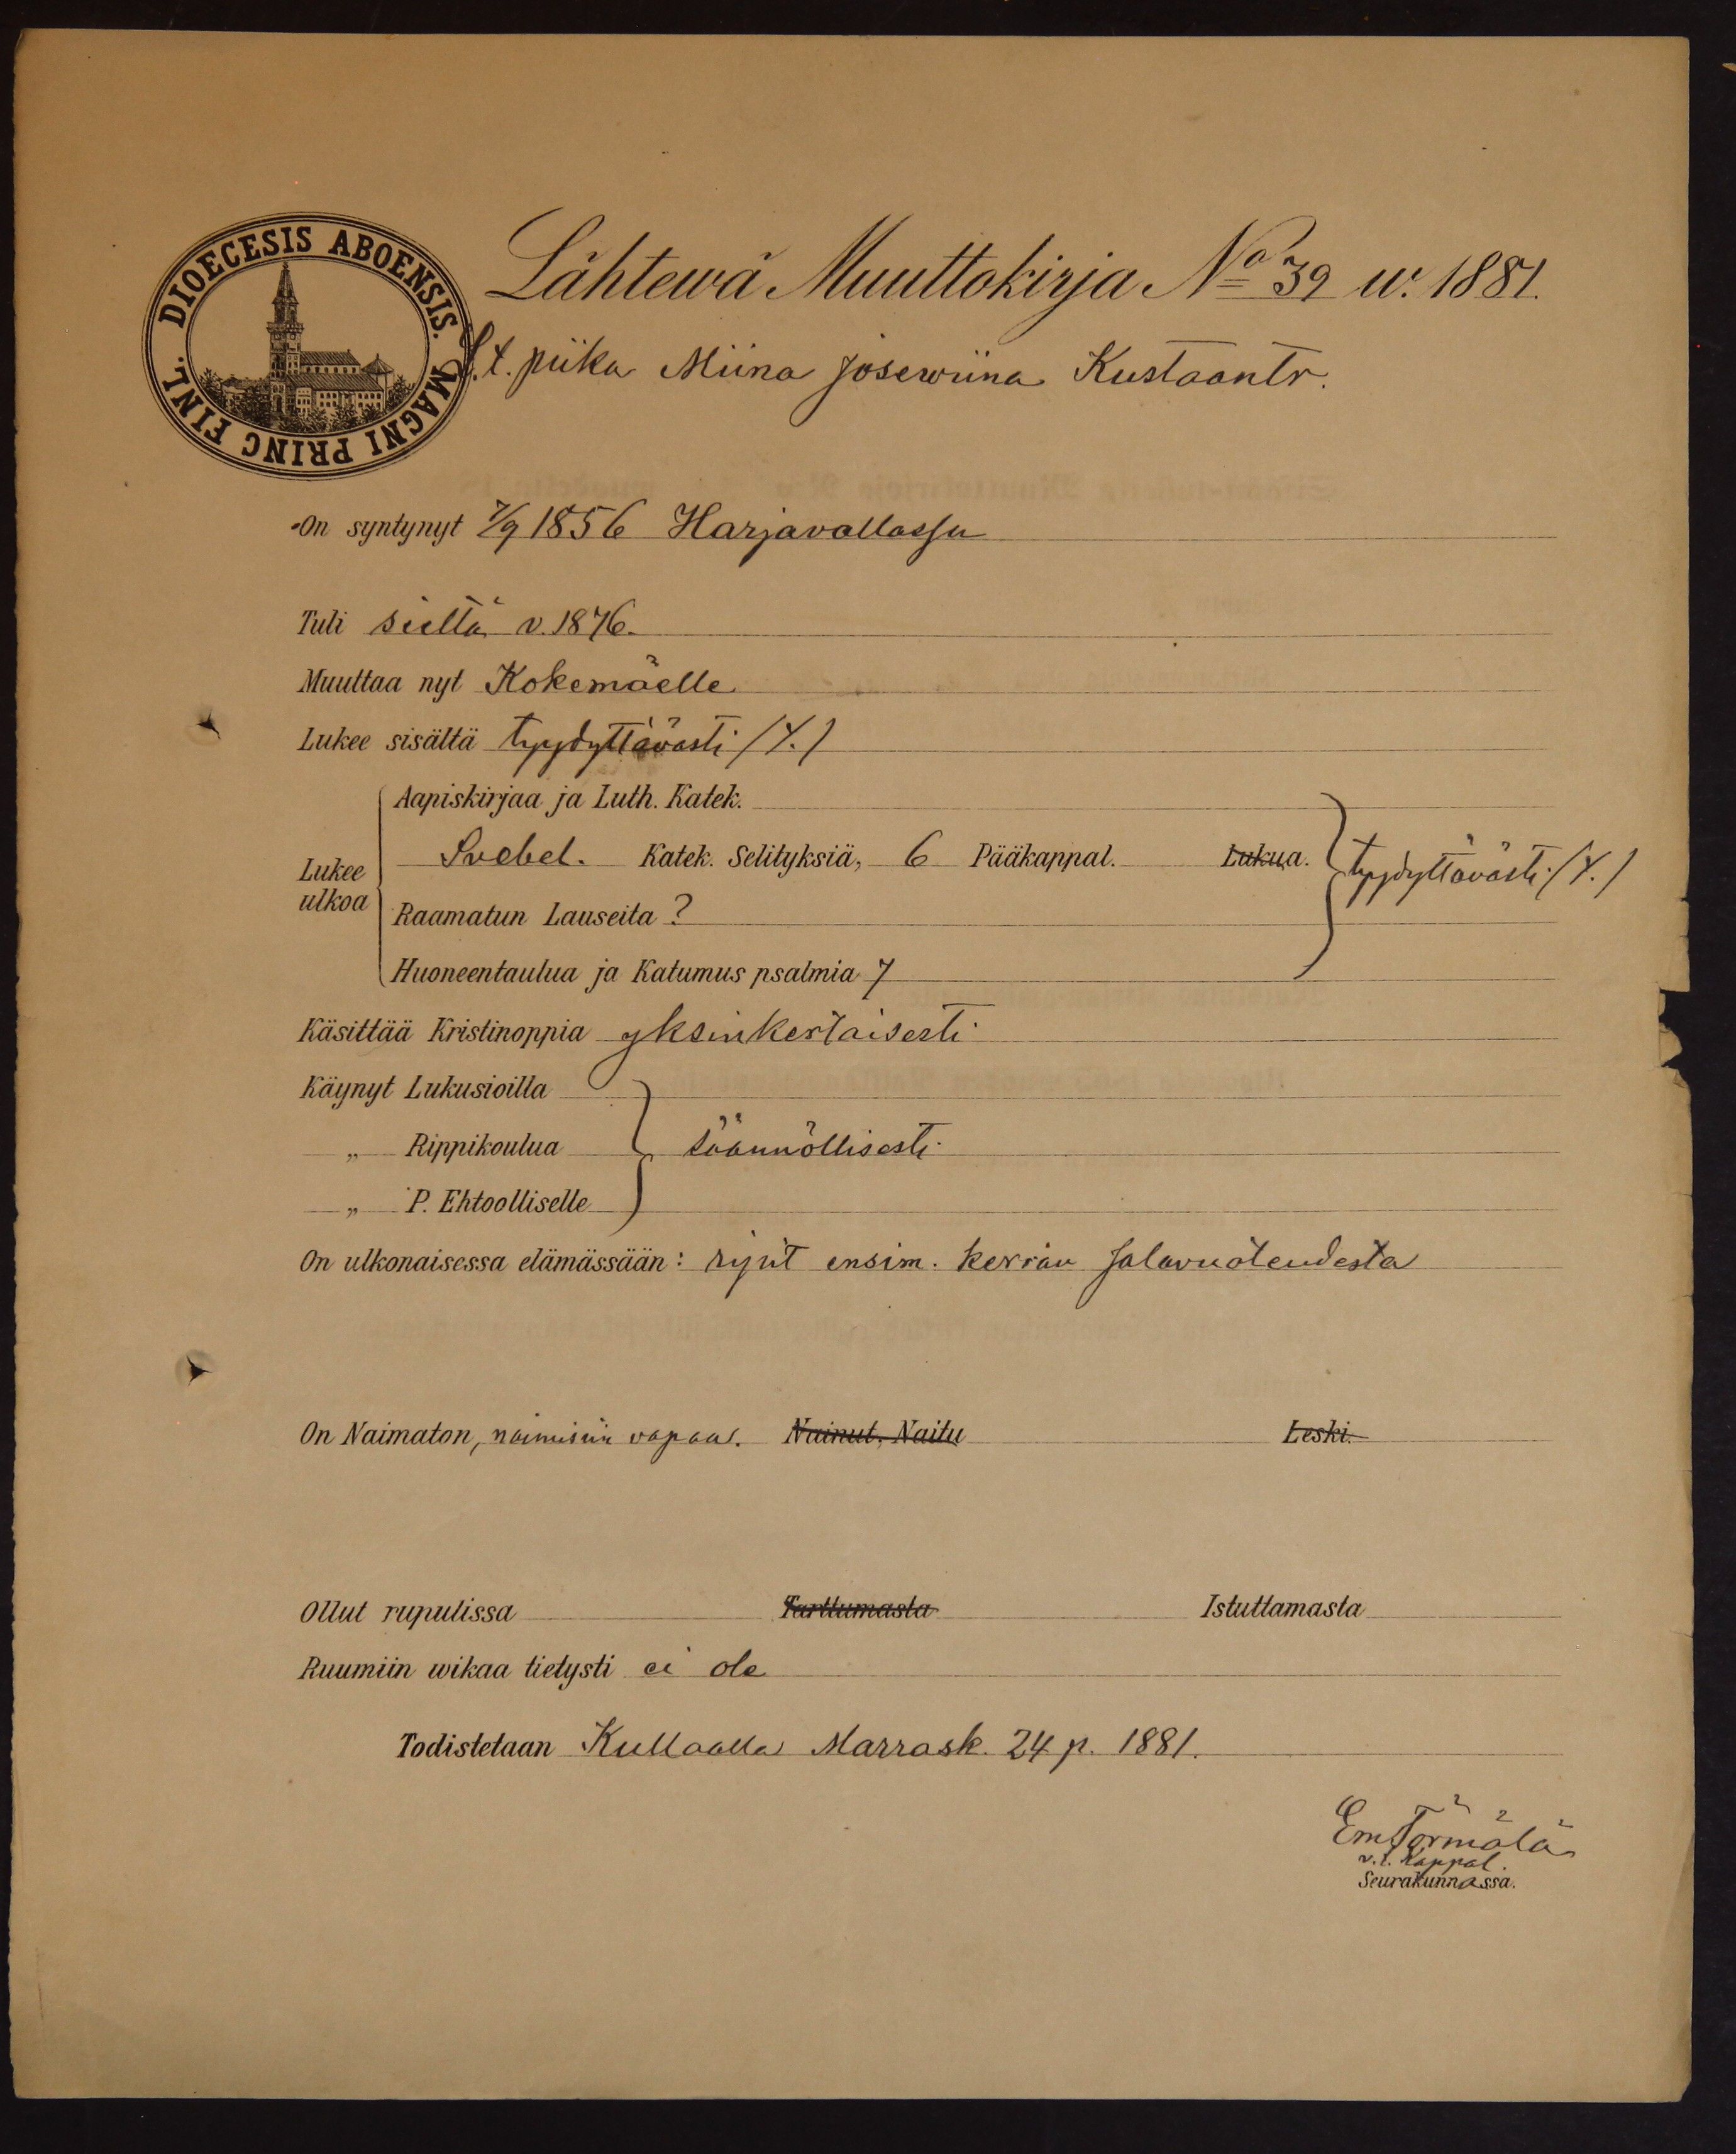 DIOECESIS ABOENSIS. MAGNI PRINC FINL.
Lähtewä Muuttokirja No 39 w. 1881.
I.t. piika Miina Josewiina Kustaantr.
On syntynyt 7/9 1856 Harjavallassa
Tuli sieltä v. 1876.
Muuttaa nyt Kokemäelle
Lukee sisältä tyydyttävästi /Y./
Aapiskirjaa ja Luth. Katek.
Lukee ulkoa
Svebel. Katek. Selityksiä, 6 Pääkappal. Lukua. tyydyttävästi /Y./
Raamatun Lauseita ?
Huoneentaulua ja Katumus psalmia 7
Käsittää Kristinoppia yksinkertaisesti
Käynyt Lukusioilla
„ Rippikoulua säännöllisesti
„ P. Ehtoolliselle
On ulkonaisessa elämässään: ripit ensim. kerran salavuoteudesta
On Naimaton, naimisiin vapaa. Nainut, Naitu Leski.
Ollut rupulissa Tarttumasta Istuttamasta
Ruumiin wikaa tietysti ei ole
Todistetaan Kullaalla Marrask. 24 p. 1881.
Em Törmälä
v.t. Kappal.
Seurakunnassa.